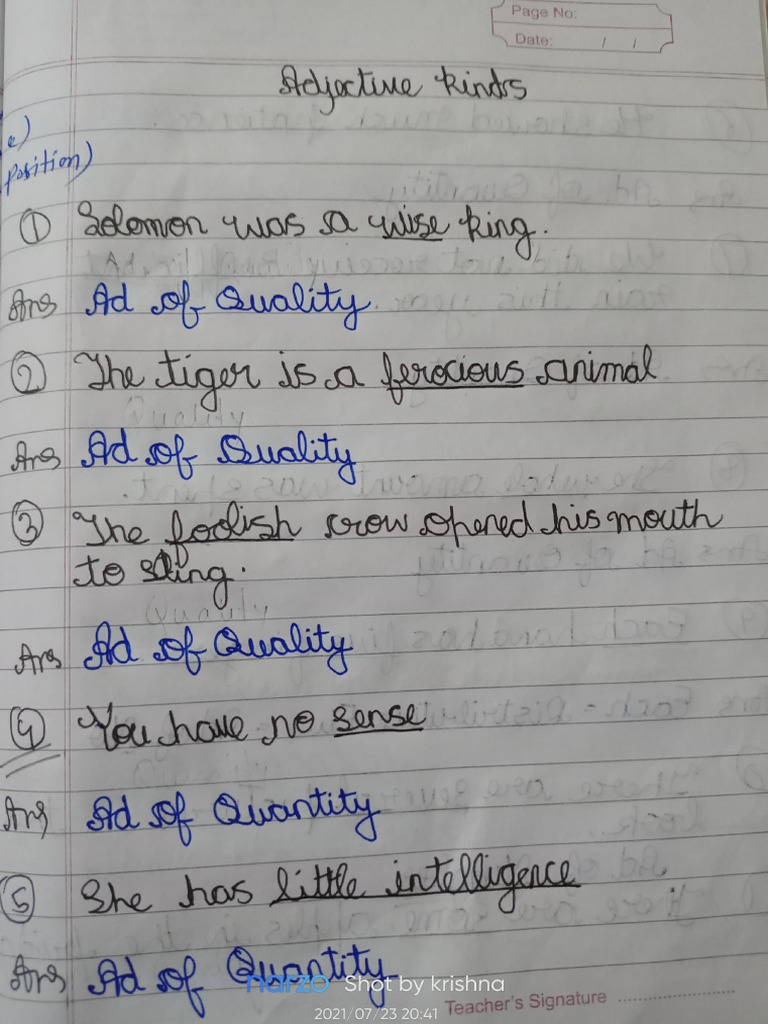 Page No:
Date: / /
Adjective kinds
e)
Position)
① Solomon was a wise king.
Ans Ad of Quality
② The tiger is a ferocious animal
Ans Ad of Quality
③ The foolish crow opened his mouth
to sing.
Ans Ad of Quality
④ You have no sense
Ans Ad of Quantity
⑤ She has little intelligence
Ans Ad of Quantity
narzo Shot by krishna
2021/07/23 20:41
Teacher's Signature